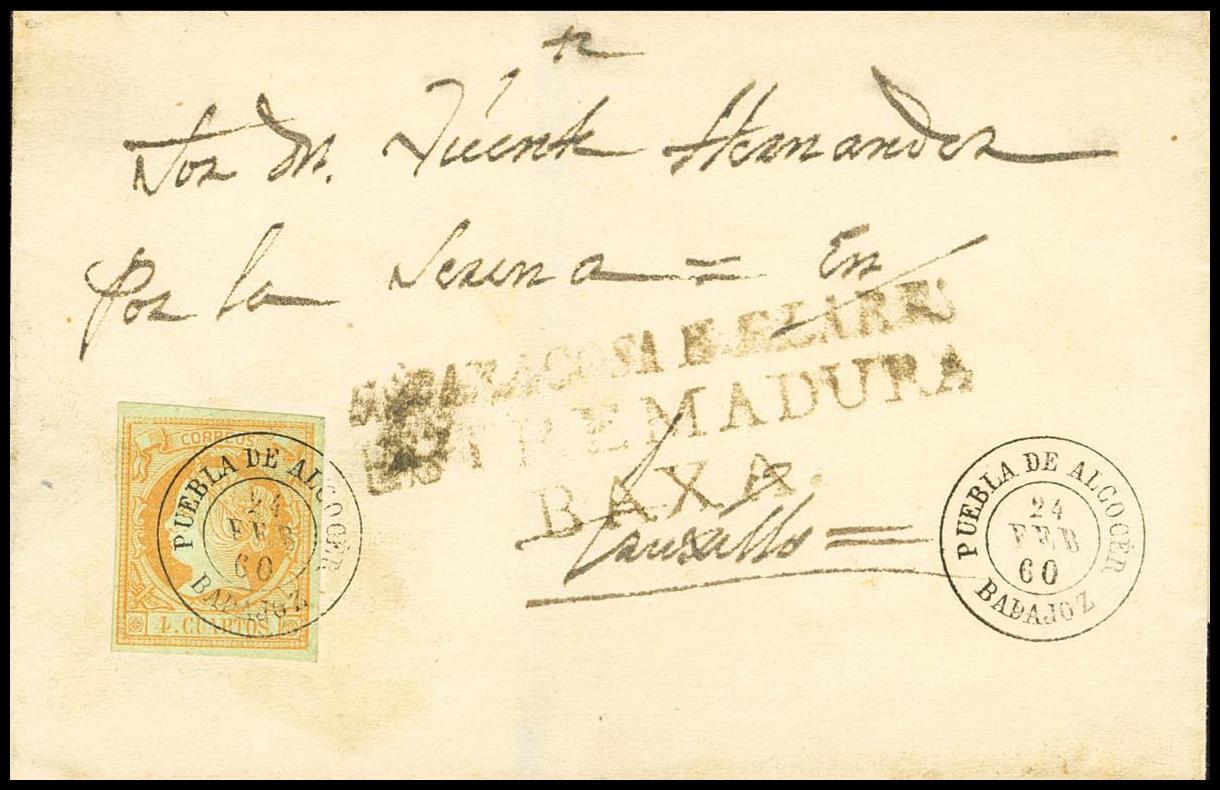 Sor dn. Vicente Hernandez
Por la Serena = En
ESTREMADURA
BAXA.
CORREOS
4. CUARTOS
PUEBLA DE ALCOCER
24
FEB
60
BADAJOZ
PUEBLA DE ALCOCER
24
FEB
60
BADAJOZ